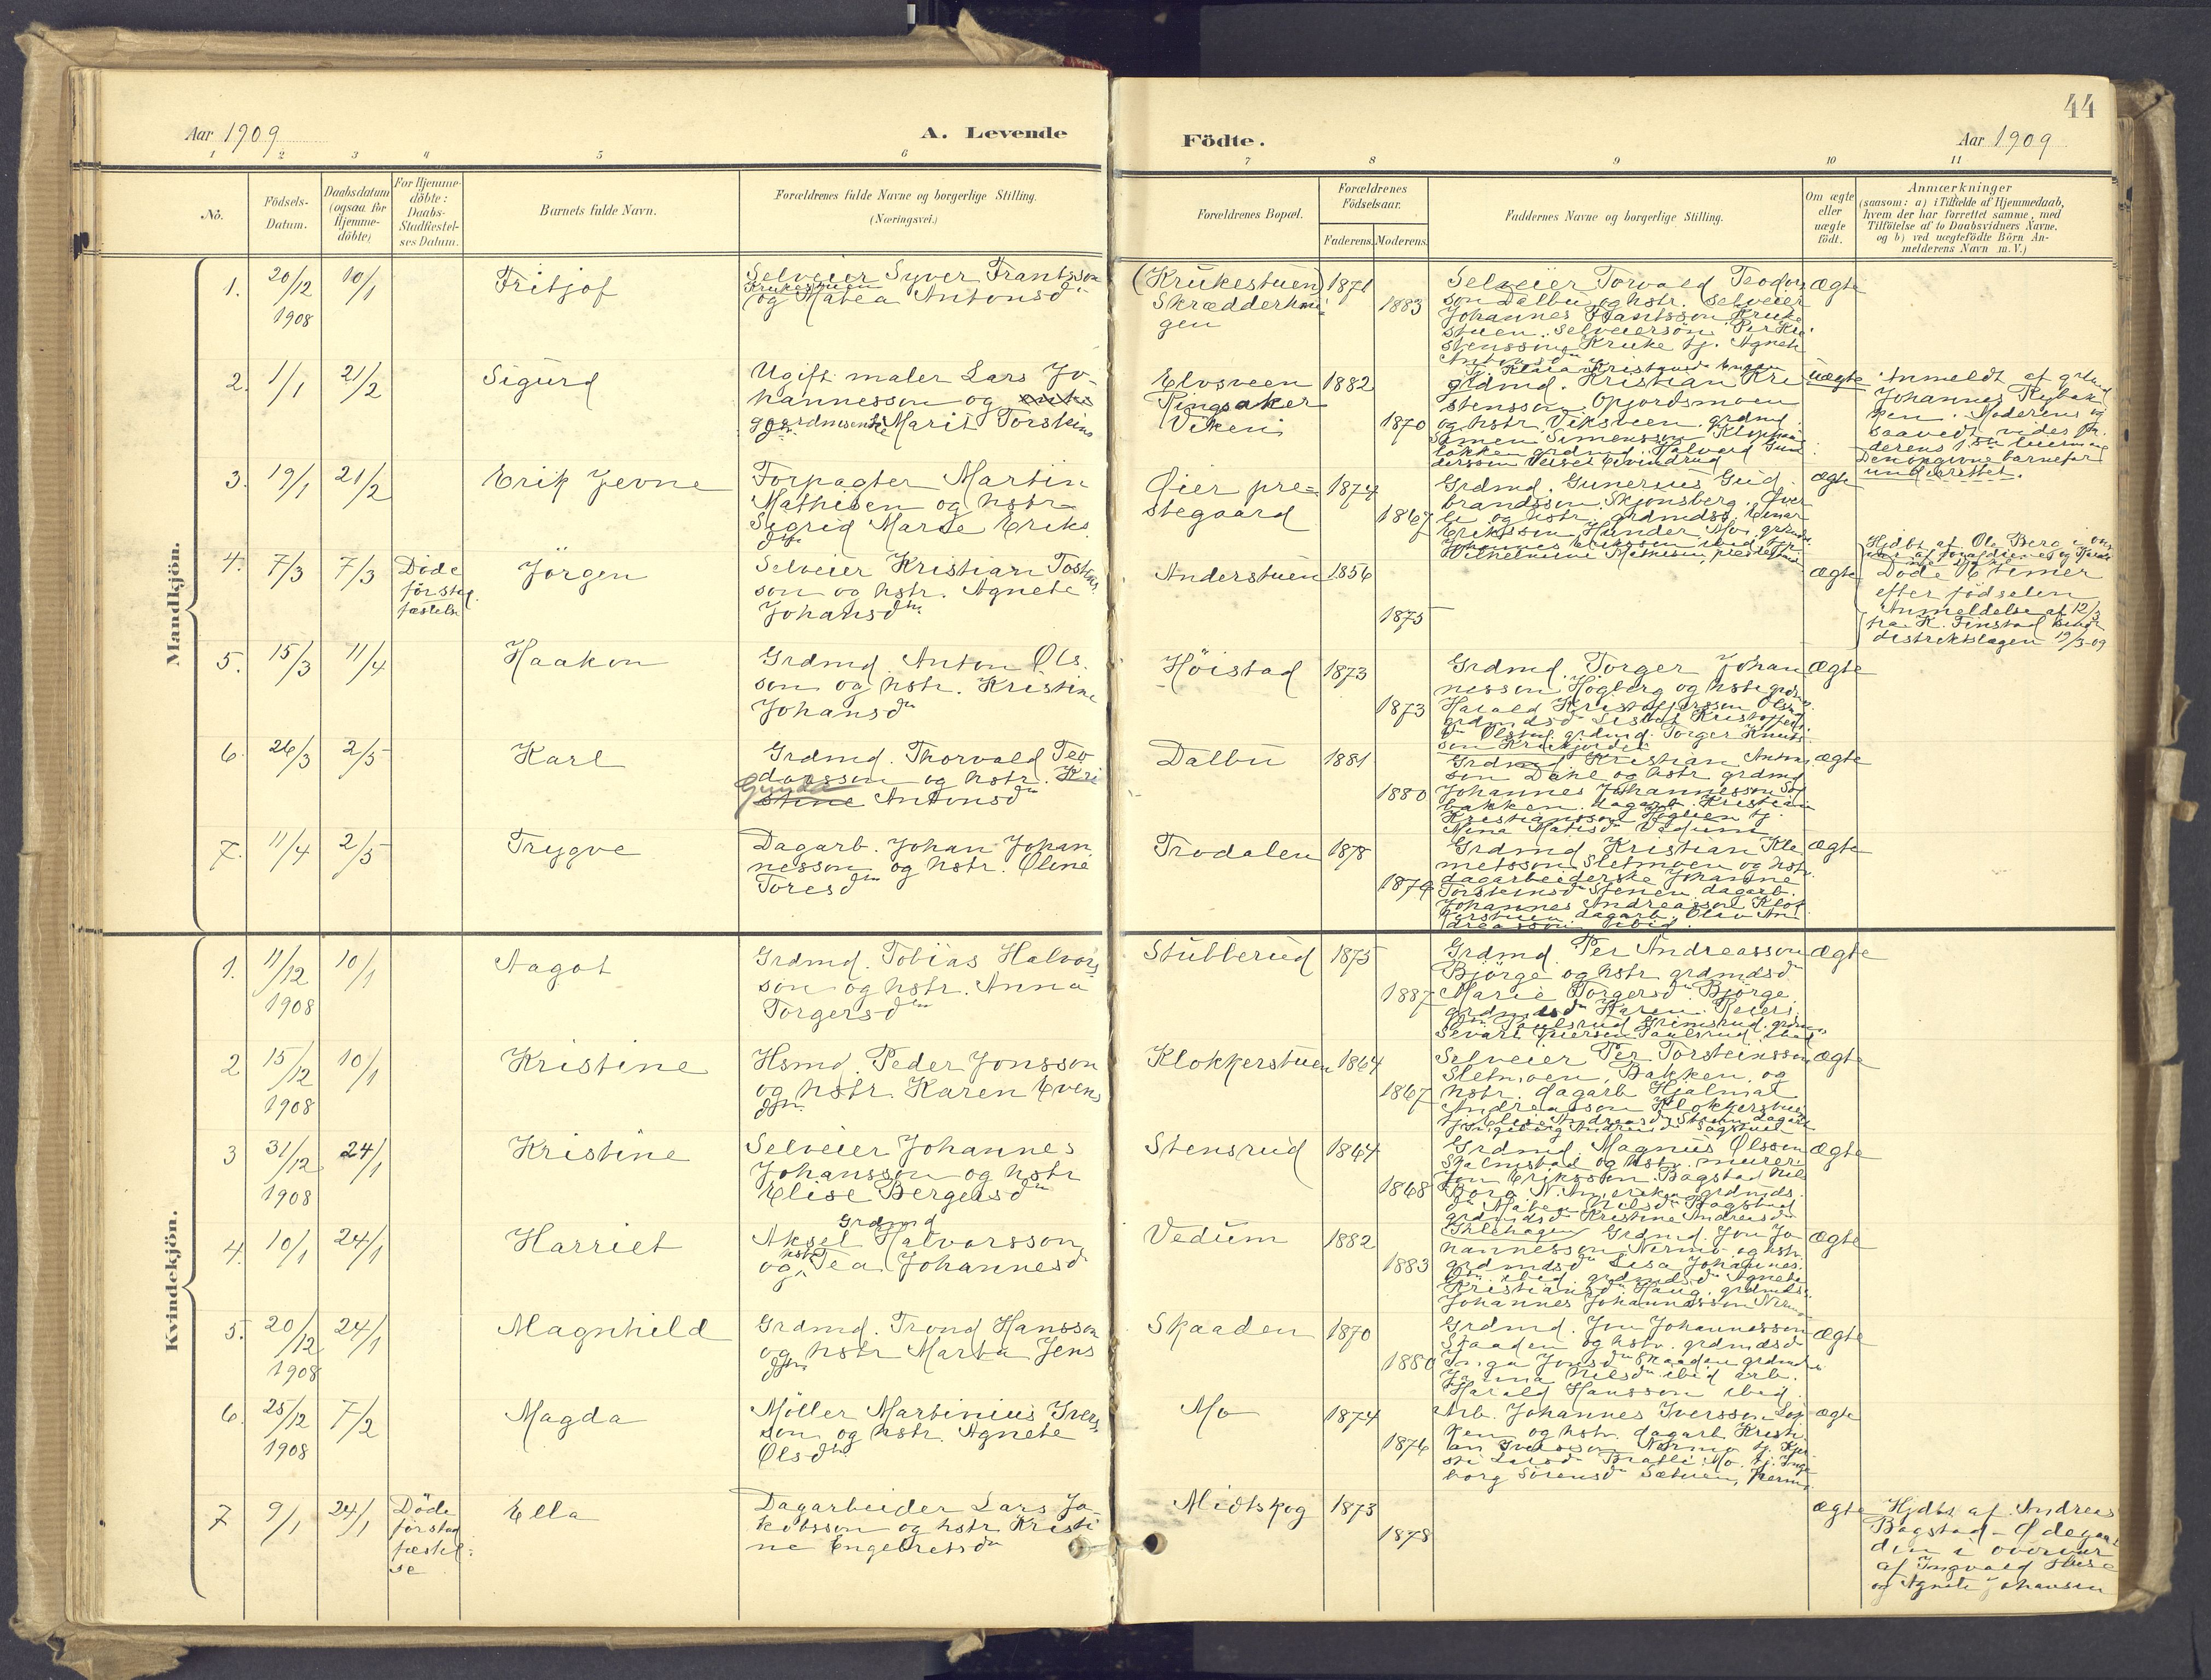 44
Aar 1909
A. Levende
Födte.
Aar 1909
1 2 3 4 5 6
7 8 9 10 11
No.
Födsels-
Datum.
Daabsdatum
(ogsaa for
Hjemme-
döbte)
For Hjemme-
döbte:
Daabs-
Stadfæstel-
ses Datum.
Barnets fulde Navn.
Forældrenes fulde Navne og borgerlige Stilling.
(Næringsvei.)
Forældrenes Bopæl.
Forældrenes
Födselsaar.
Faderens. Moderens.
Faddernes Navne og borgerlige Stilling.
Om ægte
eller
uægte
födt.
Anmærkninger
(saasom: a) i Tilfælde af Hjemmedaab,
hvem der har forrettet samme, med
Tilföielse af to Daabsvidners Navne,
og b) ved uægtefödte Börn An-
melderens Navn m. V.)
Mandkjön.
1.
20/12
1908
10/1
Fritjof
Selveier Syver Frantsson
Krukestuen
og Matea Antonsdtr
(Krukestuen)
Skrædderhau-
gen
1871
1883
Selveier Torvald Teodor
son Dalbu og hstr. selveier
Johannes Frantsson Kruke
stuen. Selveiersön Per Kri
stensson Kruke tj. Agnete
Antonsdtr
ægte
2.
1/1
21/2
Sigurd
Ugift maler Lars Jo-
hannesson og
Marit Torsteins
dtr.
Elvsveen
Ringsaker
Viken
1882
1870
grdmd. Kristian Kri
stensson Opjordsmoen
og hstr. Viksveen. grdmd.
Simen Simensson
lökken grdmd. Halvard Gun
dersson
uægte
Anmeldt af grdmd
Johannes Rybak
ken. Moderens og
saavidt vides fa-
derens 1ste leiermaal
Den opgivne barnefar
underrettet.
3.
19/1
21/2
Erik Jevne
Forpagter Martin
Mathisen og hstr.
Sigrid Marie Eriks
dtr
Öier pre-
stegaard
1874
1867
Grdmd. Gunerius Gud
brandsson Skjönsberg. Över
li og hstr. grdmdss. Einar
Eriksson Hunder, Mo, grdmds.
Johannes Eriksson ibid tjp.
Vilhelmine Mathisen, prestegaard
ægte
4.
7/3
7/3
Döde
för stad
fæstelse
Jörgen
Selveier Kristian Tosten
son og hstr. Agnete
Johansdtr.
Anderstuen
1856
1875
ægte
Hjdbt af Ole Berg i over
Döde 6 timer
efter födselen
Anmeldelse af 12/3
fra K. Finstad
distriktslægen 19/3-09
5.
15/3
11/4
Haakon
Grdmd. Anton Ols.
son og hstr. Kristine
Johansdtr
Höistad
1873
1873
Grdmd. Torger Johan
nesson Högberg og hstr grdmds.
Harald Kristoffersson Olstad
grdmdsdtr Lisbet Kristoffers
dtr Olstad, grdmd. Torger Knuts
son Krukejordet
ægte
6.
26/3
2/5
Karl
Grdmd. Thorvald Teo
dorsson og hstr. Kri
Gunda
stine Antonsdtr
Dalbu
1881
1880
Grdmd Kristian Antons
son Dahl og hstr grdmd
Johannes Johannesson Sol
bakken. dagarb. Kristian
Kristiansson Höglien tj.
Mina Matisdtr Vedum
ægte
7.
11/4
2/5
Trygve
Dagarb. Johan Johan
nesson og hstr. Oline
Toresdtr
Trodalen
1878
1879
Grdmd Kristian Kle
metsson Sletmoen og hstr.
dagarbeiderske Johanne
Torsteinsdtr Stenen dagarb.
Johannes Andreassen Klok
kerstuen dagarb. Olav An
dreassen ibid.
ægte
Kvindekjön.
1.
11/12
1908
10/1
Aagot
Grdmd. Tobias Halvors
son og hstr. Anna
Torgersdtr
Stubberud
1875
1887
Grdmd. Per Andreasson
Björge og hstr grdmdsdtr
Marie Torgersdtr Björge,
grdmdsdtr Karen Peders
dtr Paulsrud Grimsrud, grdmds
Sevart Pederson Paulsrud ibid
ægte
2
15/12
1908
10/1
Kristine
Hsmd. Peder Jonsson
og hstr. Karen Evens
dtr.
Klokkerstuen
1864
1867
Selveier Per Torsteinsson
Sletmoen, Bakken, og
hstr. dagarb Hjalmar
Andreasson Klokkerstuen
ægte
3
31/12
1908
24/1
Kristine
Selveier Johannes
Johansson og hstr
Elise Bergersdtr
Stensrud
1864
1868
Grdmd. Magnus Olsson
Skalmstad og hstr. murer
Jon Eriksson Bagstad Nils
Borg N. Amerika grdmds.
dtr Matea Nilsdtr Bagstad
grdmdsdtr Kristine Andreasdtr
ægte
4.
10/1
24/1
Harriet
Grdmd
Aksel Halvorsson
og hstr. Tea Johannesdtr
Vedum
1882
1883
Grdmd. Jon Jo
hannesson Nermo og hstr.
grdmdsdtr Lisa Johannes
dtr. ibid. grdmdsdtr Agnete
Kristiansdtr Haug, grdmds.
Johannes Johannesson Nermo
ægte
5.
20/12
1908
24/1
Magnhild
Grdmd. Trond Hansson
og hstr Marta Jens
dtr
Skaaden
1870
1880
Grdmd. Jon Johannesson
Skaaden og hstr. grdmdsdtr
Inga Jonsdtr Skaaden grdmdsdtr
Janna Nilsdtr ibid arb.
Harald Hansson ibid.
ægte
6.
25/12
1908
7/2
Magda
Möller Martinius Ivers
son og hstr. Agnete
Olsdtr
Mo
1874
1876
Arb. Johannes Iversson Lök
ken og hstr. dagarb Kristi
an Iversson Nermo tj. Kjer
sti Larsdtr Bratli Mo. tj. Inge
borg Sörensdtr Sætuen, Nermo
ægte
7
9/1
24/1
Döde
för stad
fæstel-
se
Ella
Dagarbeider Lars Ja
kobsson og hstr. Kristi
ne Engebretsdtr
Midtskog
1873
1878
ægte
Hjdbt af Andreas
Bagstad-Ödegaar
den i overvær
af Ingvald
og Agnete Johansen